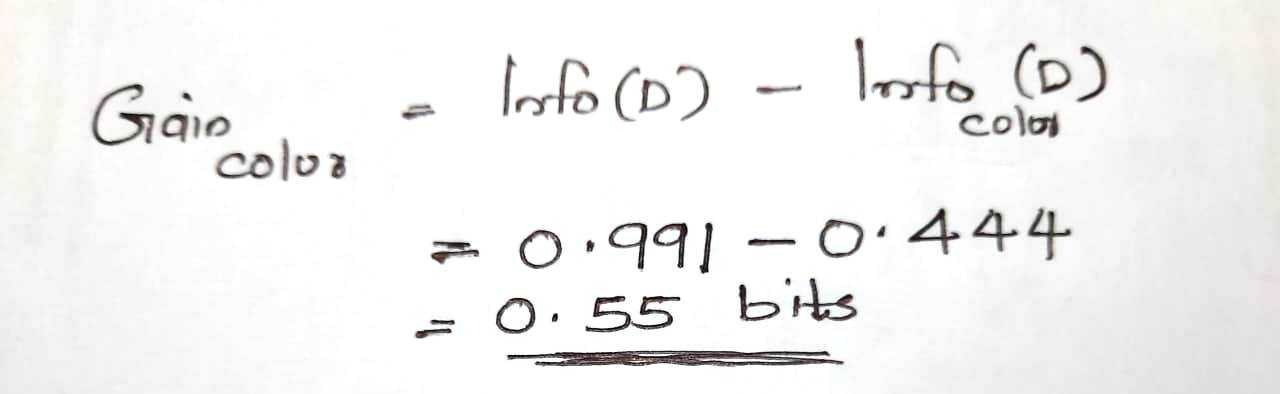 Gain color = Info (D) - Info color (D)
= 0.991 - 0.444
= 0.55 bits